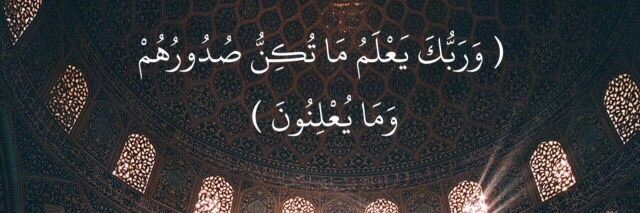 ( وَرَبُّكَ يَعْلَمُ مَا تُكِنُّ صُدُورُهُمْ
وَمَا يُعْلِنُونَ )